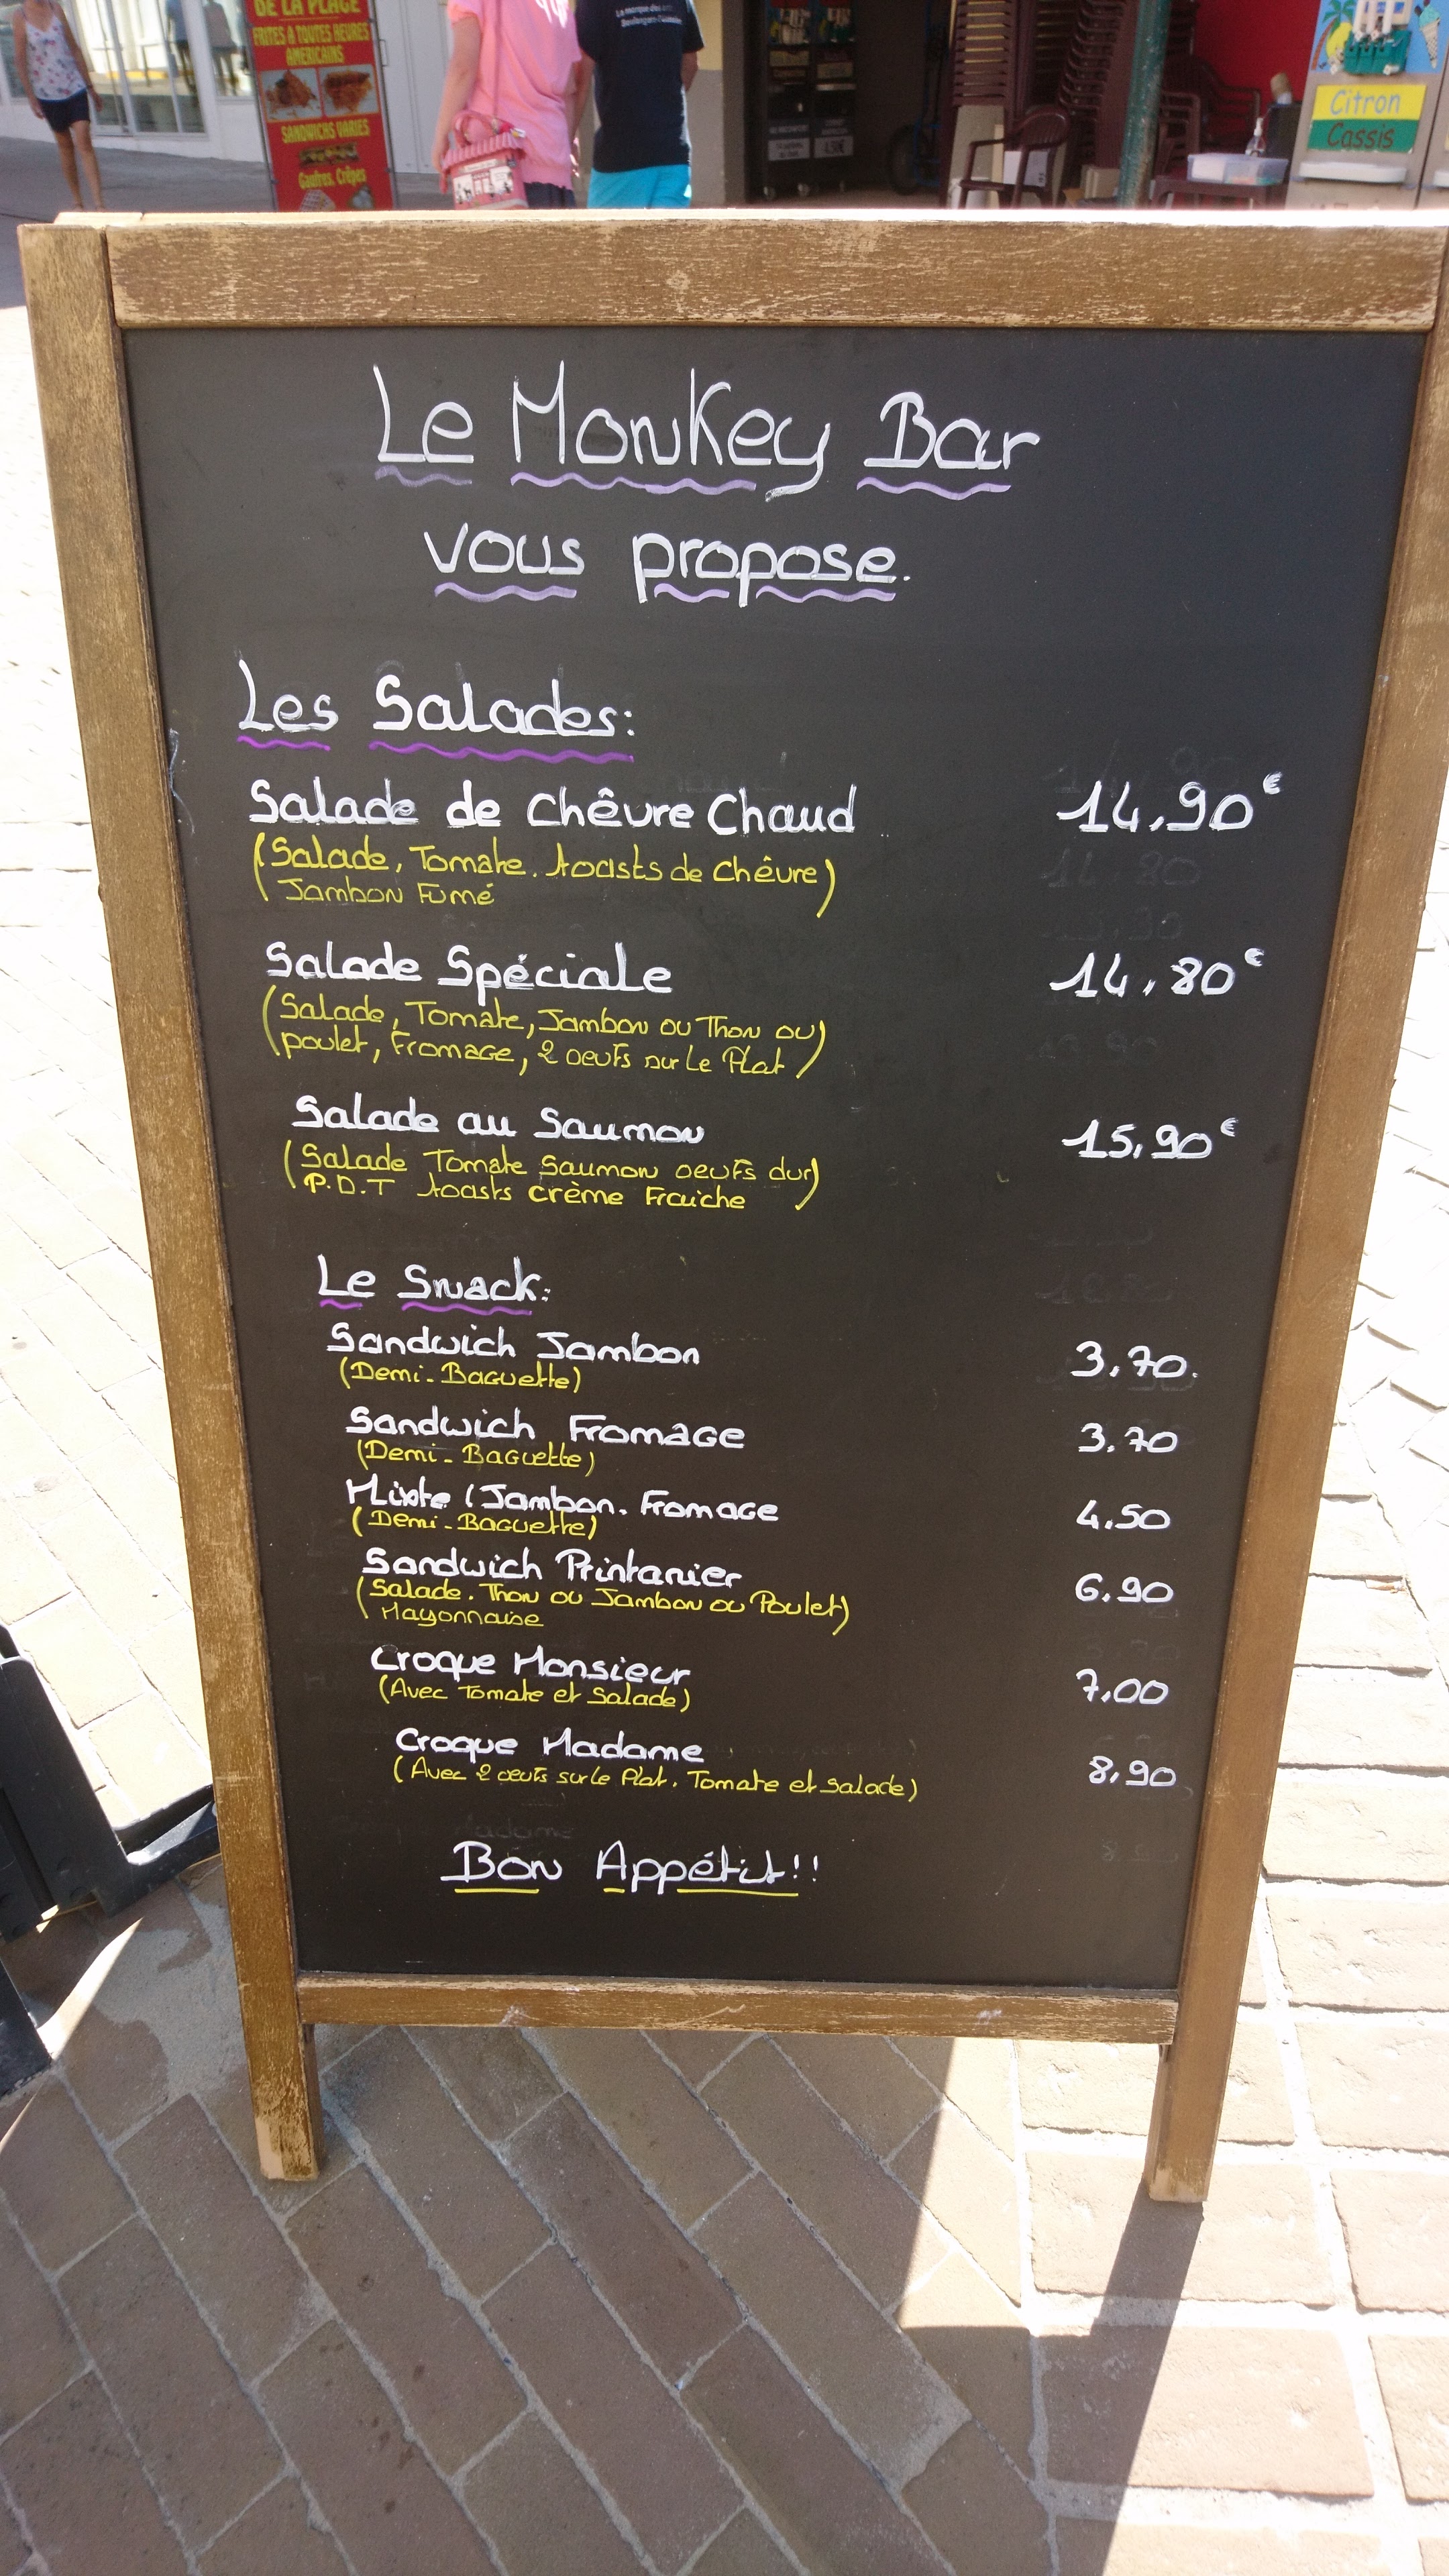 DE LA PLAGE
FRITES A TOUTES HEURES
AMERICAINS
SANDWICHS VARIES
Gaufres, Crêpes
Citron
Cassis
Le Monkey Bar
vous propose.
Les Salades:
Salade de Chêvre Chaud 14,90€
(Salade, Tomate. toasts de Chêvre)
Jambon Fumé
Salade Spéciale 14,80€
(Salade, Tomate, Jambon ou Thon ou)
poulet, Fromage, 2 oeufs sur Le Plat)
Salade au Saumon 15,90€
(Salade Tomate Saumon oeufs dur)
P.D.T toasts crème Fraiche
Le Snack:
Sandwich Jambon 3,70.
(Demi-Baguette)
Sandwich Fromage 3,70
(Demi-Baguette)
Mixte (Jambon. Fromage 4,50
(Demi-Baguette)
Sandwich Printanier 6,90
(Salade. Thon ou Jambon ou Poulet)
Mayonnaise
Croque Monsieur 7,00
(Avec Tomate et Salade)
Croque Madame 8,90
(Avec 2 oeufs sur le Plat. Tomate et Salade)
Bon Appétit!!